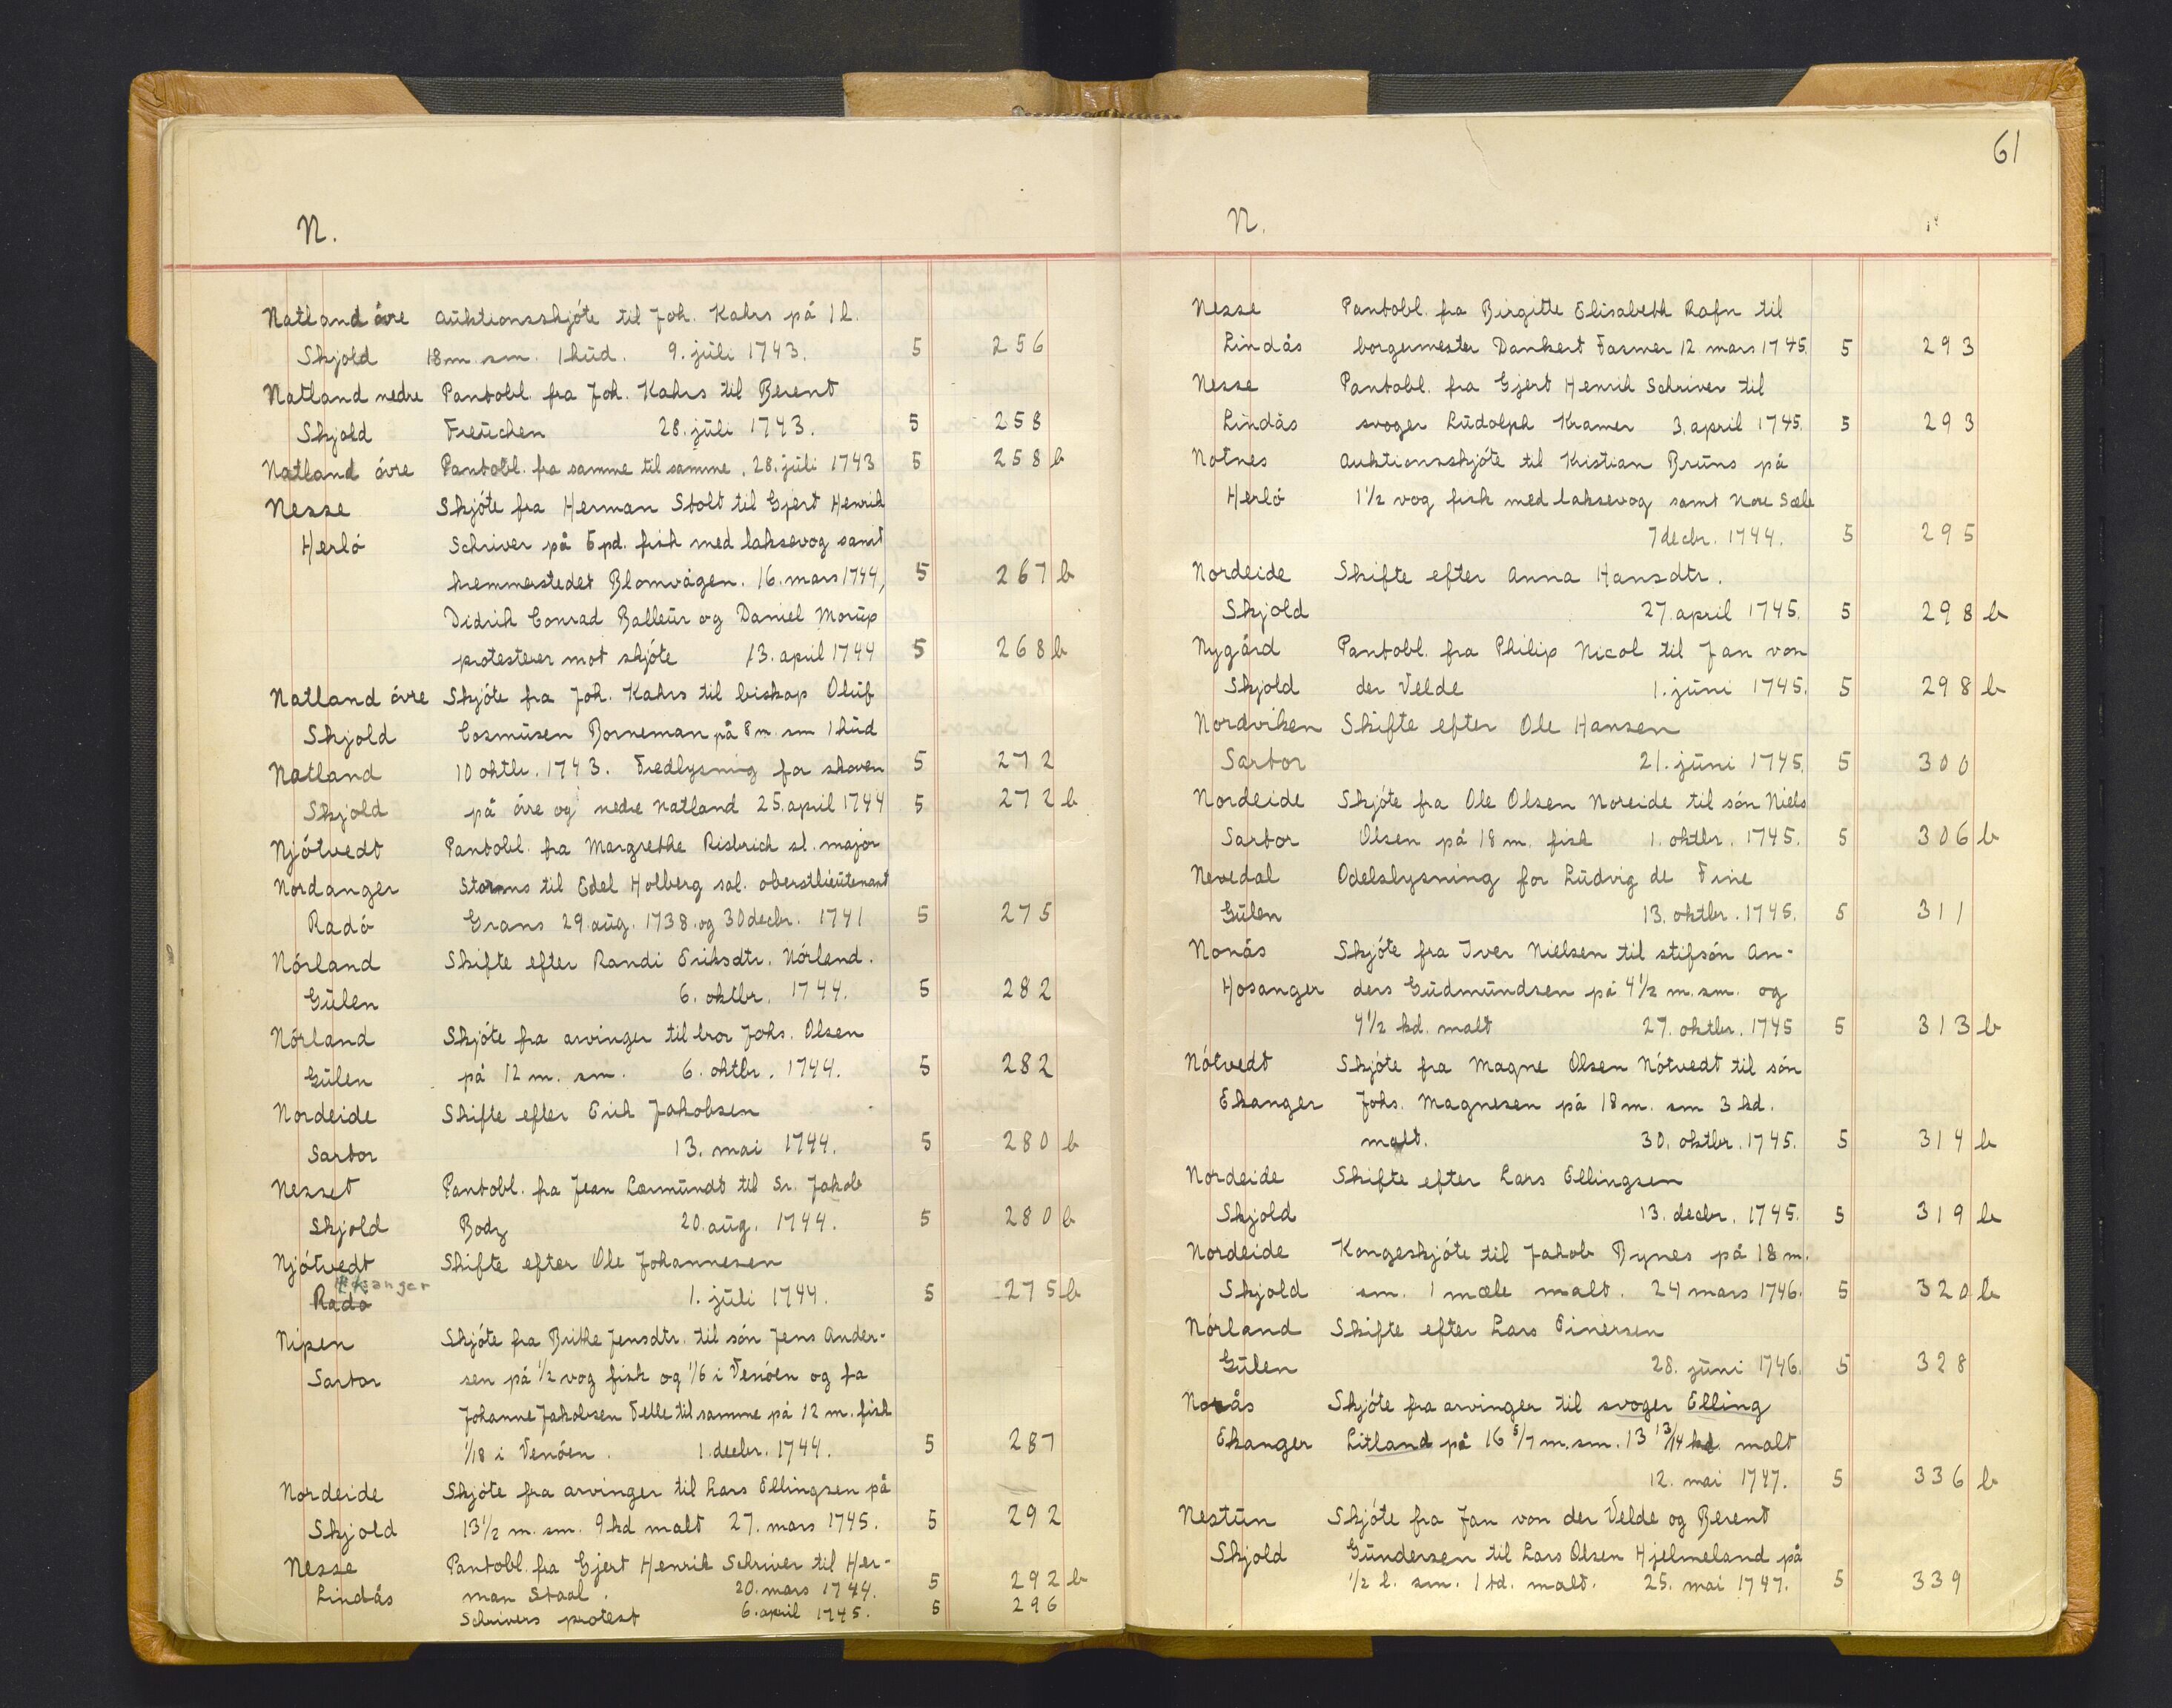 N.
Natland övre Auktionsskjöte til Joh. Kahrs på 1 l.
Skjold 18 m. sm. 1 hud. 9. juli 1743. 5 256
Natland nedre Pantobl. fra Joh. Kahrs til Berent
Skjold Freuchen 28. juli 1743. 5 258
Natland övre Pantobl. fra samme til samme. 28. juli 1743 5 258 b
Nesse Skjöte fra Herman Stolt til Gjert Henrik
Herlö Schriver på 6 pd. fisk med laksevog samt
kremmerstedet Blomvågen. 16. mars 1744, 5 267 b
Didrik Conrad Balleur og Daniel Morup
protesterer mot skjöte 13. april 1744 5 268 b
Natland övre Skjöte fra Joh. Kahrs til biskop Oluf
Skjold Cosmusen Borneman på 8 m. sm 1 hud
Natland 10 oktbr. 1743. Fredlysning for skoven 5 272
Skjold på övre og nedre Natland 25. april 1744 5 272 b
Njötvedt Pantobl. fra Margrethe Risbrich sl. major
Nordanger Storms til Edel Holberg sal. oberstlieutenant
Radö Grans 29. aug. 1738. og 30 decbr. 1741 5 275
Nörland Skifte efter Randi Eriksdtr. Nörland.
Gulen 6. oktbr. 1744. 5 282
Nörland Skjöte fra arvinger til bror Johs. Olsen
Gulen på 12 m. sm. 6. oktbr. 1744. 5 282
Nordeide Skifte efter Erik Jakobsen
Sartor 13. mai 1744. 5 280 b
Nesset Pantobl. fra Jean Lormundt til Sr. Jakob
Skjold Body 20. aug. 1744. 5 280 b
Njötvedt Skifte efter Ole Johannesen
Ekanger
Radö 1. juli 1744. 5 275 b
Nipen Skjöte fra Brithe Jensdtr. til sön Jens Ander-
Sartor sen på 1/2 vog fisk og 1/6 i Venöen og fra
Johanne Jakobsen Telle til samme på 12 m. fisk
1/18 i Venöen. 1. decbr. 1744. 5 287
Nordeide Skjöte fra arvinger til Lars Ellingsen på
Skjold 13 1/2 m. sm. 9 kd malt 27. mars 1745. 5 292
Nesse Pantobl. fra Gjert Henrik Schriver til Her-
Lindås man Staal. 20. mars 1744. 5 292 b
Schrivers protest 6. april 1745. 5 296
61
N.
Nesse Pantobl. fra Birgitte Elisabeth Rafn til
Lindås borgermester Dankert Farmer 12. mars 1745. 5 293
Nesse Pantobl. fra Gjert Henrik Schriver til
Lindås svoger Ludolph Kramer 3. april 1745. 5 293
Notnes Auktionsskjöte til Kristian Bruns på
Herlö 1 1/2 vog fisk med laksevog samt Nore Sæle
7 decbr. 1744. 5 295
Nordeide Skifte efter Anna Hansdtr.
Skjold 27. april 1745. 5 298 b
Nygård Pantobl. fra Philip Nicol til Jan von
Skjold der Velde 1. juni 1745. 5 298 b
Nordviken Skifte efter Ole Hansen
Sartor 21. juni 1745. 5 300
Nordeide Skjöte fra Ole Olsen Noreide til sön Niels
Sartor Olsen på 18 m. fisk 1. oktbr. 1745. 5 306 b
Nevedal Odelslysning for Ludvig de Fine
Gulen 13. oktbr. 1745. 5 311
Nonås Skjöte fra Iver Nielsen til stifsön An-
Hosanger ders Gudmundsen på 4 1/2 m. sm. og
4 1/2 kd. malt 27. oktbr. 1745 5 313 b
Nötvedt Skjöte fra Magne Olsen Nötvedt til sön
Ekanger Johs. Magnesen på 18 m. sm 3 kd.
malt. 30. oktbr. 1745. 5 314 b
Nordeide Skifte efter Lars Ellingsen
Skjold 13. decbr. 1745. 5 319 b
Nordeide Kongeskjöte til Jakob Bynes på 18 m.
Skjold sm. 1 mæle malt. 24 mars 1746. 5 320 b
Nörland Skifte efter Lars Einersen
Gulen 28. juni 1746. 5 328
Norås Skjöte fra arvinger til svoger Elling
Ekanger Litland på 16 5/7 m. sm. 13 13/14 kd. malt
12. mai 1747. 5 336 b
Nestun Skjöte fra Jan von der Velde og Berent
Skjold Gundersen til Lars Olsen Hjelmeland på
1/2 l. sm. 1 td. malt. 25. mai 1747. 5 339